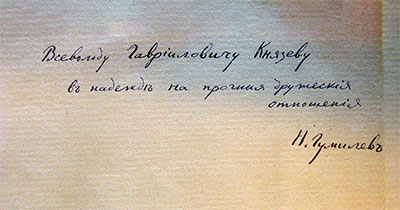 Всеволоду Гаврiиловичу Князеву
въ надеждѣ на прочныя дружескiя
отношенiя
Н. Гумилевъ